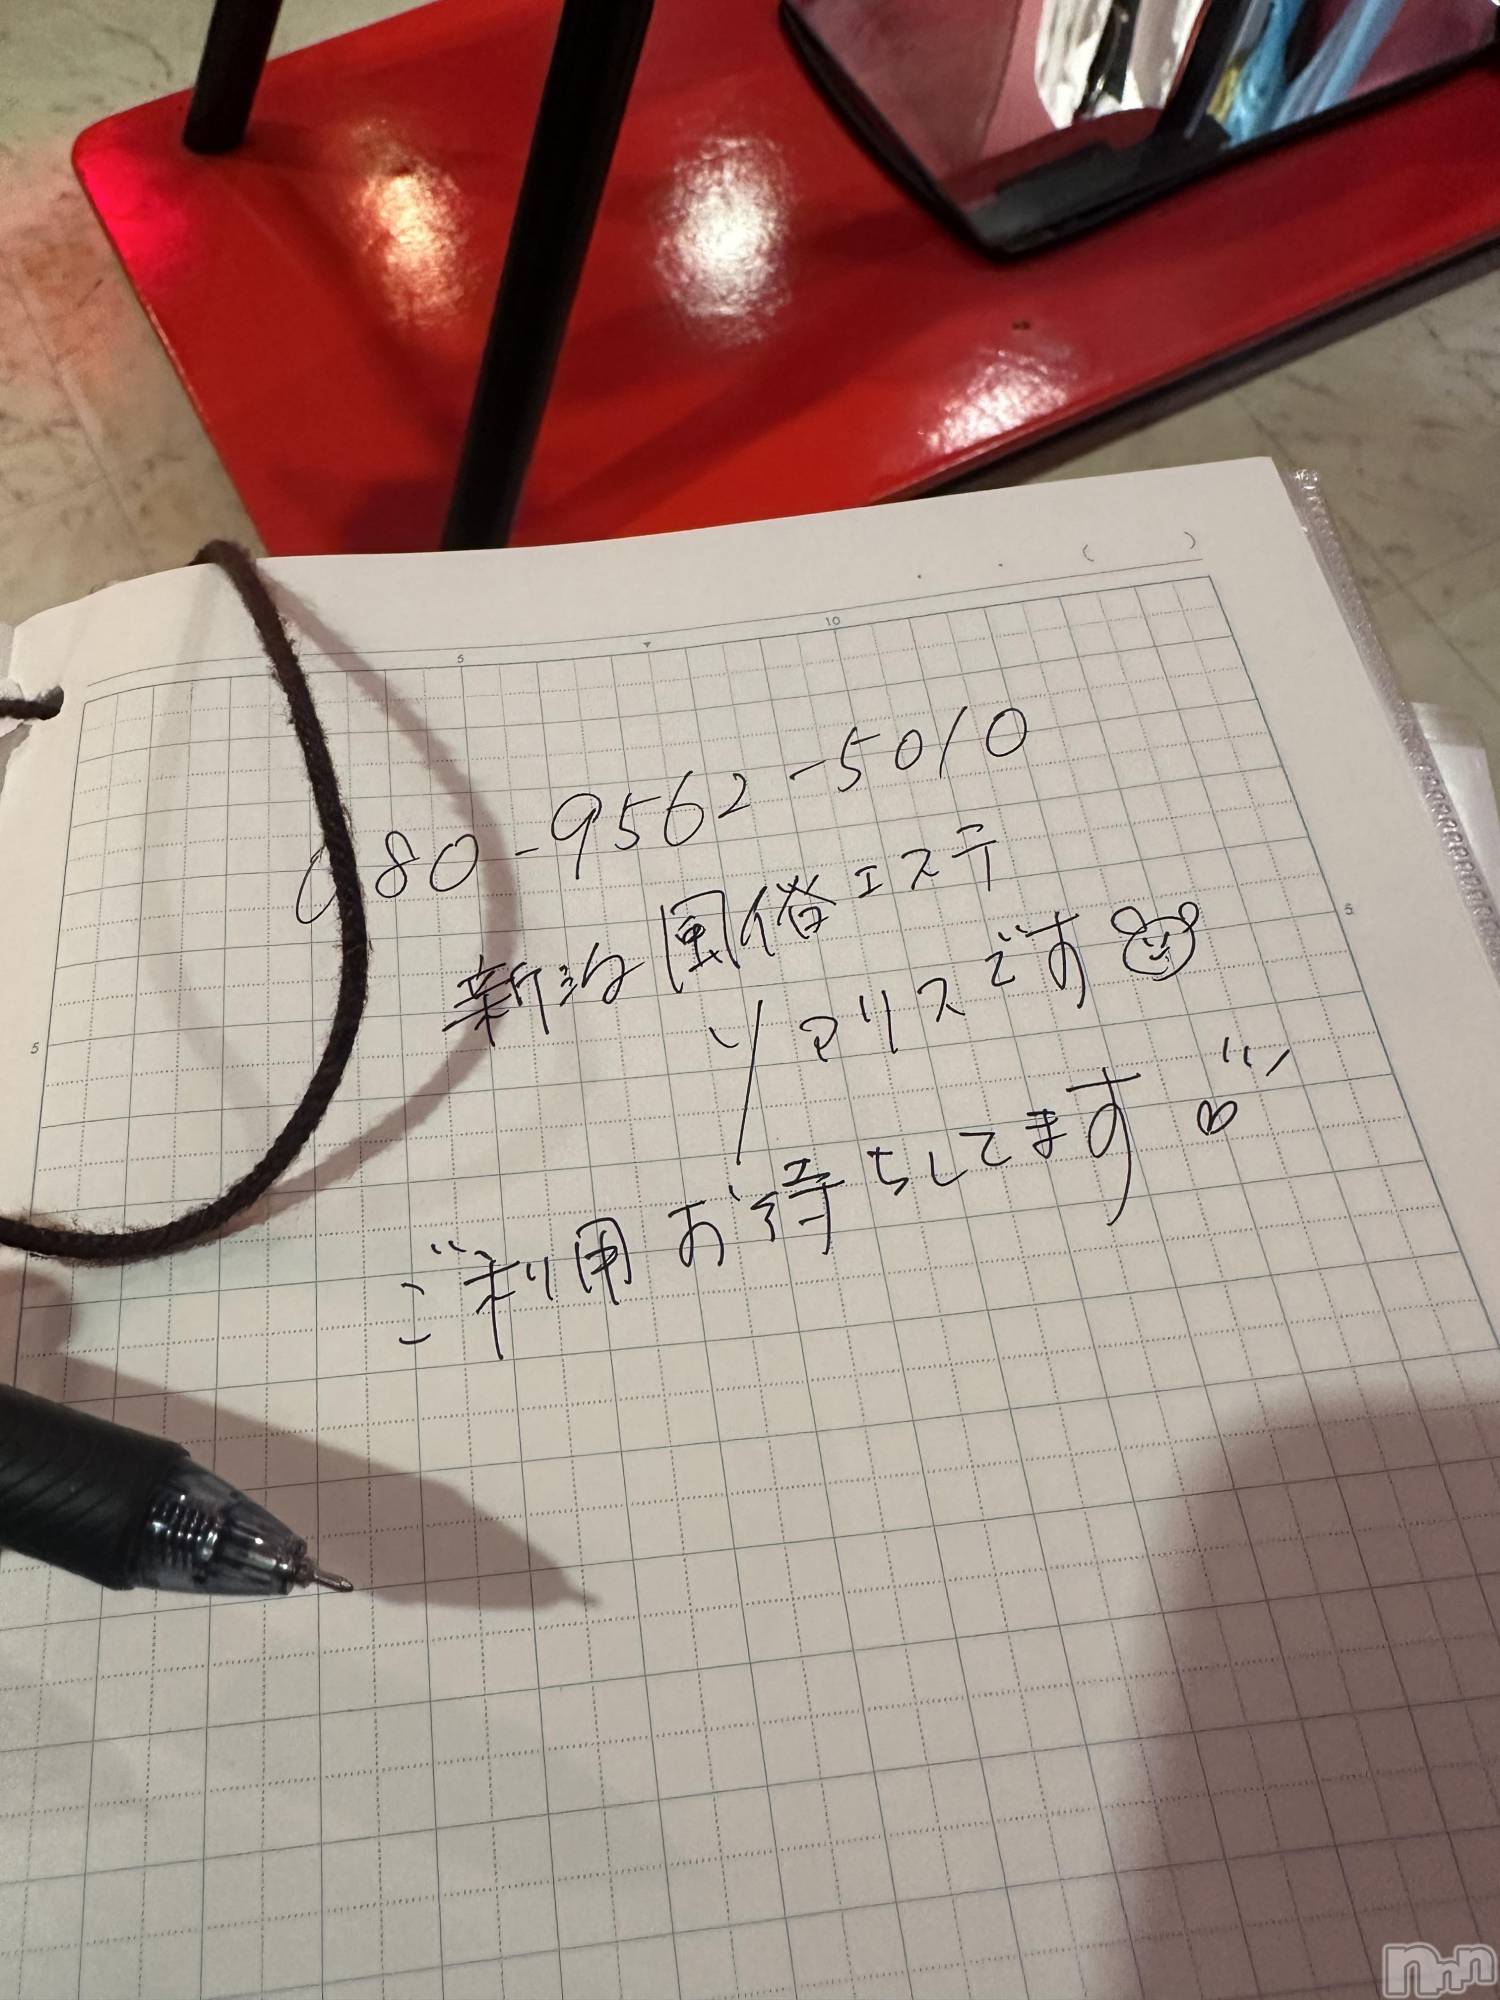 ( )
5
10
080-9562-5010
新潟風俗エステ
ソマリスです
ご利用お待ちしてます♡
5
5
nnn